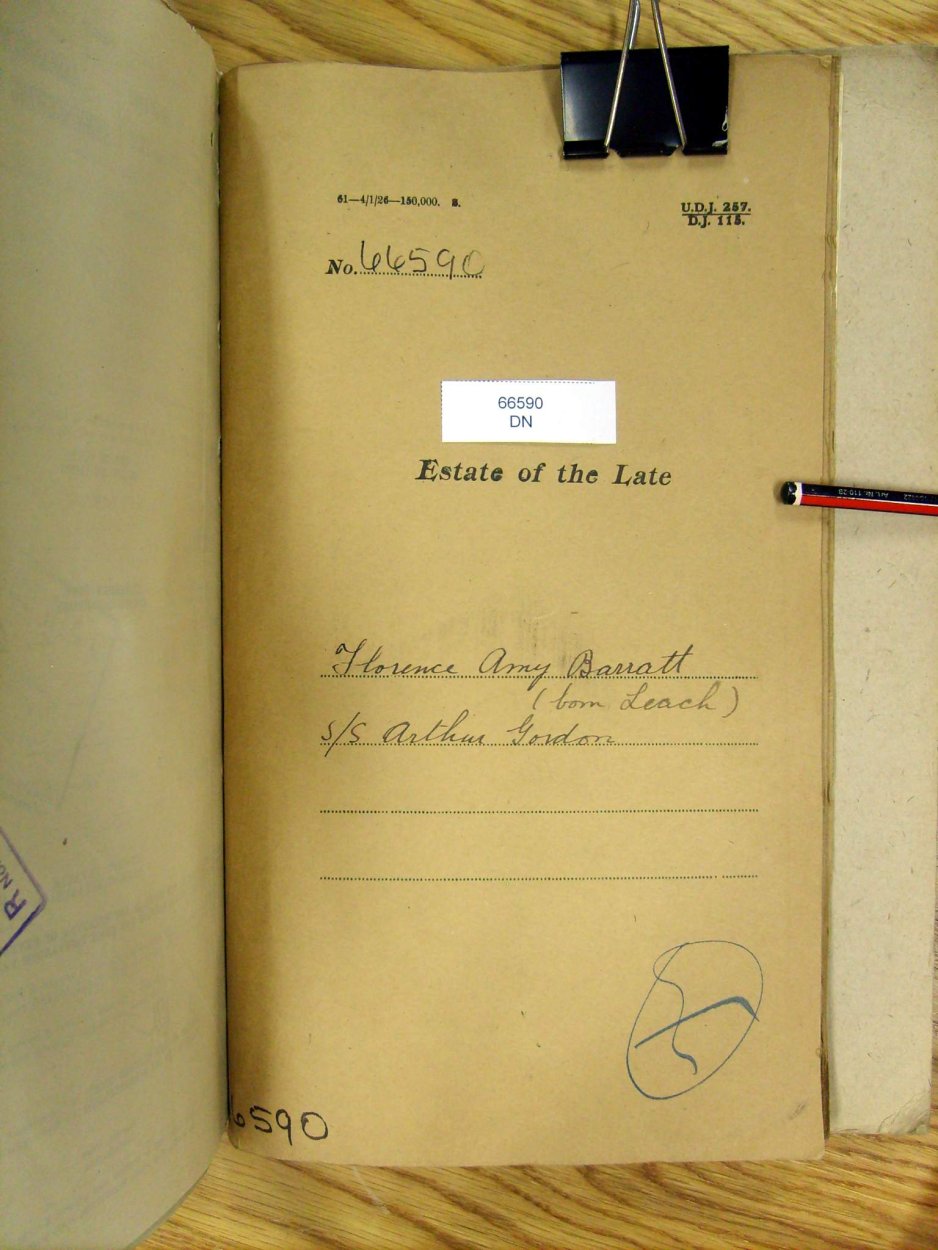 61—4/1/26—150,000. S.
U.D.J. 257.
D.J. 115.
No. 66590
66590
DN
Estate of the Late
Florence Amy Barratt
(born Leach)
S/S Arthur Gordon
6590
R NO
Art. Nr. 110 20